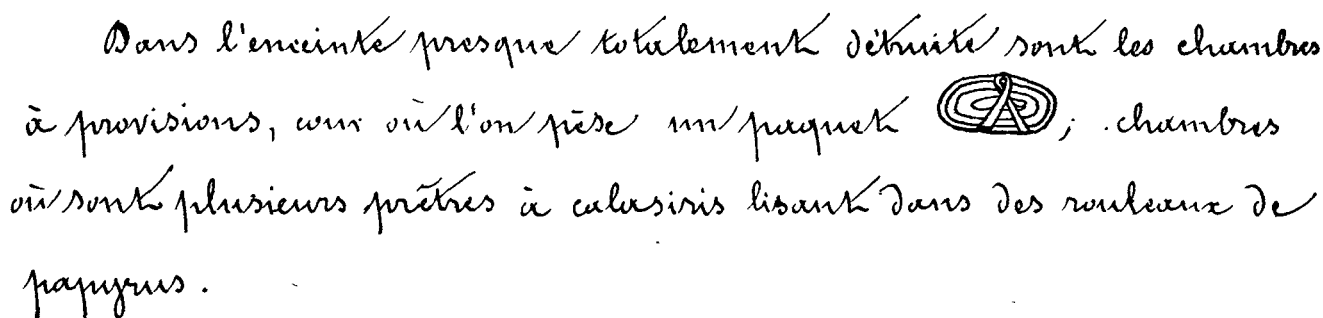 Dans l'enceinte presque totalement détruite sont les chambres
à provisions, cour où l'on pèse un paquet ; chambres
où sont plusieurs prêtres à calasiris lisant dans des rouleaux de
papyrus.